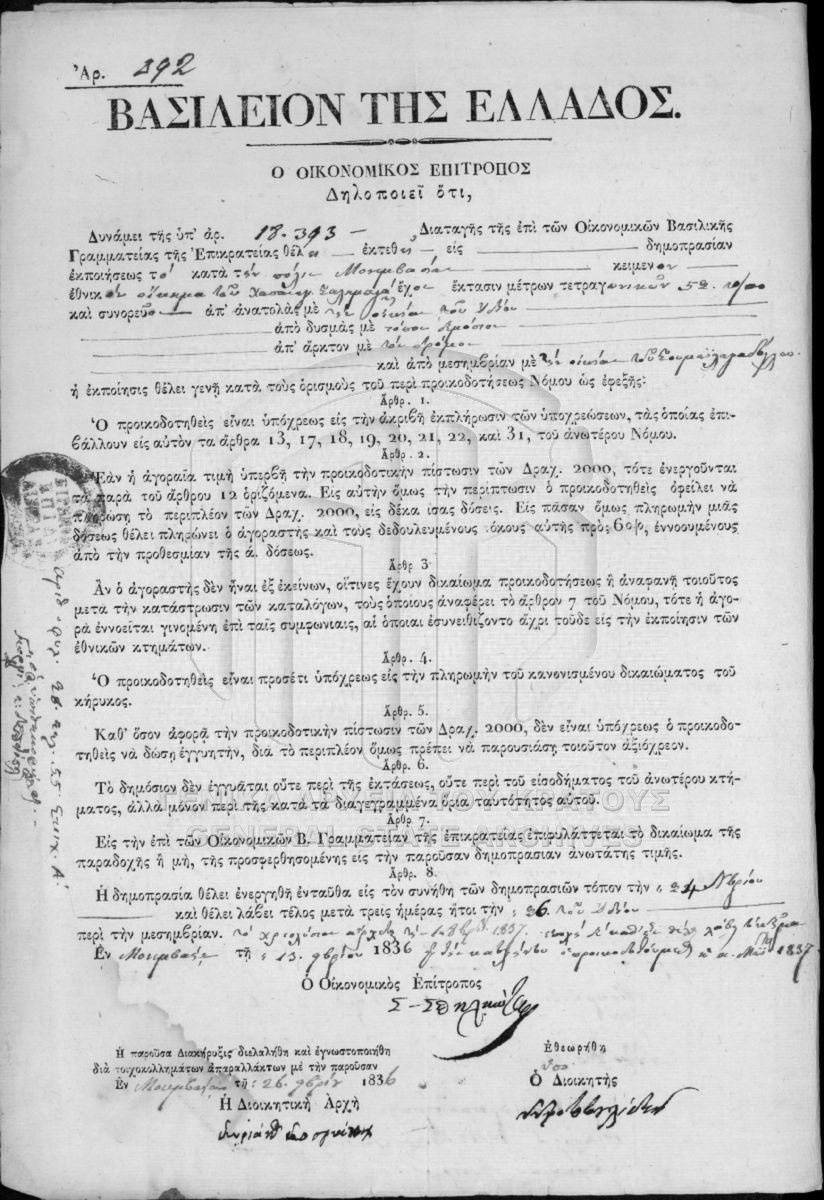 Ἀρ. 392
ΒΑΣΙΛΕΙΟΝ ΤΗΣ ΕΛΛΑΔΟΣ.
Ο ΟΙΚΟΝΟΜΙΚΟΣ ΕΠΙΤΡΟΠΟΣ
Δηλοποιεῖ ὅτι,
Δυνάμει τῆς ὑπ' ἀρ. 18.393 Διαταγῆς τῆς ἐπὶ τῶν Οἰκονομικῶν Βασιλικῆς
Γραμματείας τῆς Ἐπικρατείας θέλει ἐκτεθῆ εἰς δημοπρασίαν
ἐκποιήσεως τὸ κατὰ τὴν πόλιν Μονεμβασίας κείμενον
ἐθνικὸν οἴκημα τοῦ ἔχον ἔκτασιν μέτρων τετραγωνικῶν 52
καὶ συνορεῦον ἀπ' ἀνατολὰς μὲ τὴν οἰκίαν τοῦ ἰδίου
ἀπὸ δυσμὰς μὲ τόπον δημόσιον
ἀπ' ἄρκτον μὲ τὸν δρόμον
καὶ ἀπὸ μεσημβρίαν μὲ τὴν οἰκίαν τοῦ
ἡ ἐκποίησις θέλει γενῆ κατὰ τοὺς ὁρισμοὺς τοῦ περὶ προικοδοτήσεως Νόμου ὡς ἐφεξῆς:
Ἄρθρ. 1.
Ὁ προικοδοτηθεὶς εἶναι ὑπόχρεως εἰς τὴν ἀκριβῆ ἐκπλήρωσιν τῶν ὑποχρεώσεων, τὰς ὁποίας ἐπι-
βάλλουν εἰς αὐτὸν τα ἄρθρα 13, 17, 18, 19, 20, 21, 22, καὶ 31, τοῦ ἀνωτέρου Νόμου.
Ἄρθρ. 2.
Ἐὰν ἡ ἀγοραία τιμὴ ὑπερβῆ τὴν προικοδοτικὴν πίστωσιν τῶν Δραχ. 2000, τότε ἐνεργοῦνται
τὰ παρὰ τοῦ ἄρθρου 12 ὁριζόμενα. Εἰς αὐτὴν ὅμως τὴν περίπτωσιν ὁ προικοδοτηθεὶς ὀφείλει νὰ
πληρώσῃ τὸ περιπλέον τῶν Δραχ. 2000, εἰς δέκα ἴσας δόσεις. Εἰς πᾶσαν ὅμως πληρωμὴν μιᾶς
δόσεως θέλει πληρώνει ὁ ἀγοραστὴς καὶ τοὺς δεδουλευμένους τόκους αὐτῆς πρὸς 6 ο|ο, ἐννοουμένους
ἀπὸ τὴν προθεσμίαν τῆς ά. δόσεως.
Ἄρθρ. 3
Ἂν ὁ ἀγοραστὴς δὲν ἦναι ἐξ ἐκείνων, οἵτινες ἔχουν δικαίωμα προικοδοτήσεως ἢ ἀναφανῆ τοιοῦτος
μετὰ τὴν κατάστρωσιν τῶν καταλόγων, τοὺς ὁποίους ἀναφέρει τὸ ἄρθρον 7 τοῦ Νόμου, τότε ἡ ἀγο-
ρὰ ἐννοεῖται γινομένη ἐπὶ ταῖς συμφωνίαις, αἱ ὁποῖαι ἐσυνειθίζοντο ἄχρι τοῦδε εἰς τὴν ἐκποίησιν τῶν
ἐθνικῶν κτημάτων.
Ἄρθρ. 4.
Ὁ προικοδοτηθεὶς εἶναι προσέτι ὑπόχρεως εἰς τὴν πληρωμὴν τοῦ κανονισμένου δικαιώματος τοῦ
κήρυκος.
Ἄρθρ. 5.
Καθ' ὅσον ἀφορᾷ τὴν προικοδοτικὴν πίστωσιν τῶν Δραχ. 2000, δὲν εἶναι ὑπόχρεως ὁ προικοδο-
τηθεὶς νὰ δώσῃ ἐγγυητὴν, διὰ τὸ περιπλέον ὅμως πρέπει νὰ παρουσιάσῃ τοιοῦτον ἀξιόχρεον.
Ἄρθρ. 6.
Τὸ δημόσιον δὲν ἐγγυᾶται οὔτε περὶ τῆς ἐκτάσεως, οὔτε περὶ τοῦ εἰσοδήματος τοῦ ἀνωτέρου κτή-
ματος, ἀλλὰ μόνον περὶ τῆς κατὰ τὰ διαγεγραμμένα ὅρια ταυτότητος αὐτοῦ.
ΓΕΝΙΚΑ ΑΡΧΕΙΑ ΤΟΥ ΚΡΑΤΟΥΣ
GENERAL STATE ARCHIVES
Ἄρθρ. 7.
Εἰς τὴν ἐπὶ τῶν Οἰκονομικῶν Β. Γραμματείαν τῆς ἐπικρατείας ἐπιφυλάττεται τὸ δικαίωμα τῆς
παραδοχῆς ἢ μὴ, τῆς προσφερθησομένης εἰς τὴν παροῦσαν δημοπρασίαν ἀνωτάτης τιμῆς.
Ἄρθρ. 8.
Ἡ δημοπρασία θέλει ἐνεργηθῆ ἐνταῦθα εἰς τὸν συνήθη τῶν δημοπρασιῶν τόπον τὴν 24 9βρίου
καὶ θέλει λάβει τέλος μετὰ τρεῖς ἡμέρας ἤτοι τὴν 26 τοῦ ἰδίου
περὶ τὴν μεσημβρίαν.
Ἐν Μονεμβασίᾳ τῇ 13 9βρίου 1836
Ὁ Οἰκονομικὸς Ἐπίτροπος
Ἡ παροῦσα Διακήρυξις διελαλήθη καὶ ἐγνωστοποιήθη
διὰ τοιχοκολλημάτων ἀπαραλλάκτων μὲ τὴν παροῦσαν
Ἐν Μονεμβασίᾳ τῇ 26 9βρίου 1836
Ἡ Διοικητικὴ Ἀρχὴ
Ἐθεωρήθη
Ὁ Διοικητὴς